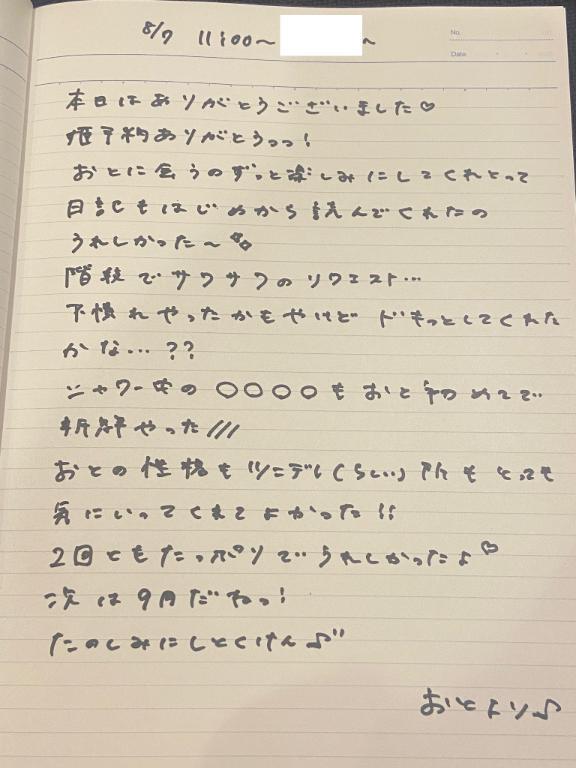 8/7 11:00〜 〜
No.
Date
本日はありがとうございました♡
姫予約ありがとうっっ!
おとに会うのずっと楽しみにしてくれとって
日記もはじめから読んでくれたの
うれしかった〜
階段でサワサワのリクエスト…
不慣れやったかもやけど ドキっとしてくれた
かな…??
シャワー中の〇〇〇〇もおと初めてで
新鮮やった///
おとの性格もツンデレ(らしい)所もとっても
気にいってくれてよかった!!
2回ともたっぷりでうれしかったよ♡
次は9月だねっ!
たのしみにしとくけん♪
おとより♪